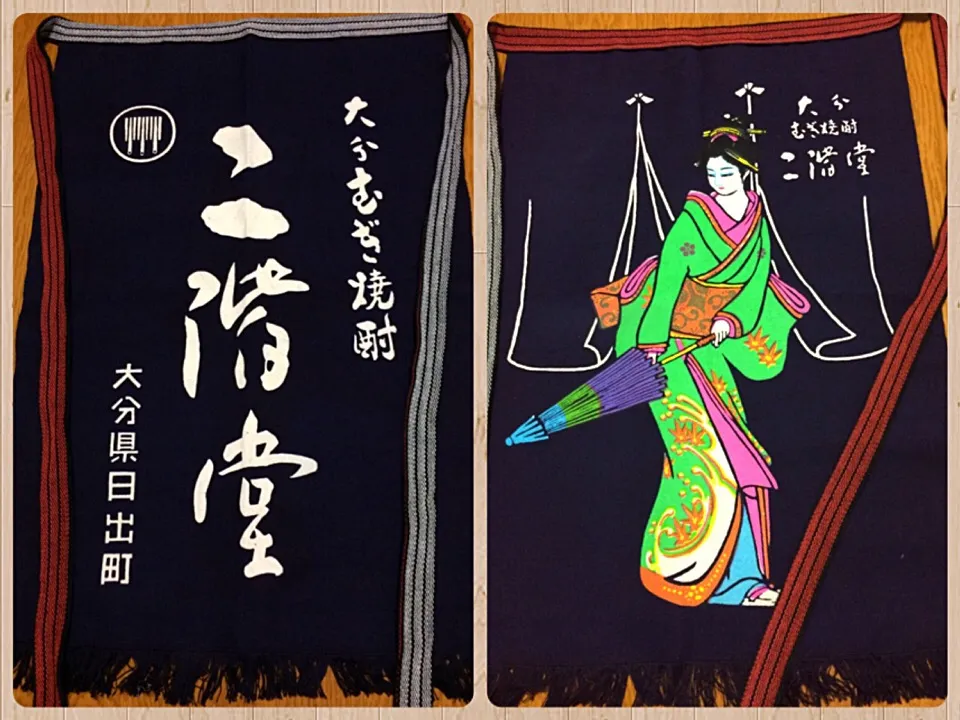 大分むぎ焼酎
二階堂
大分県日出町
大分
むぎ焼酎
二階堂